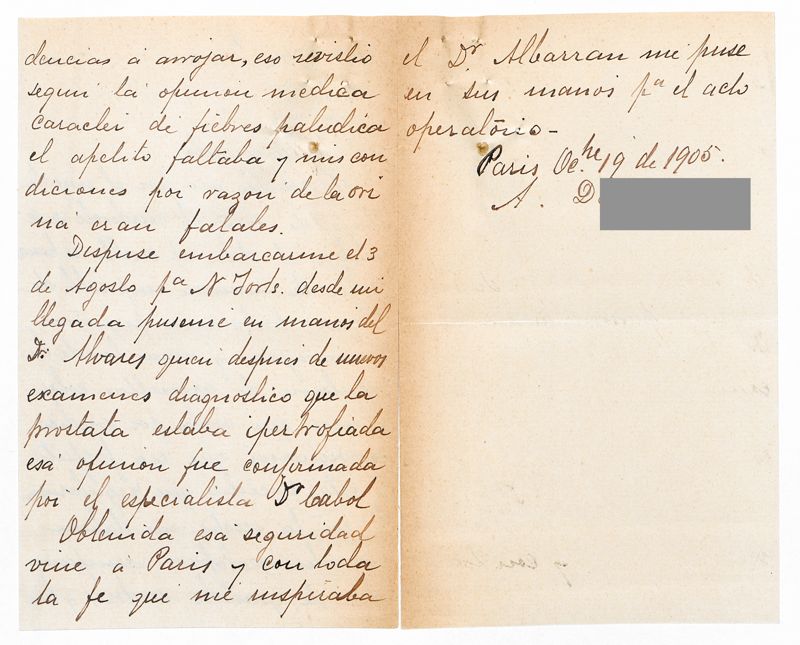 dencias a arrojar, eso revistio
segun la opinion medica
caracter de fiebres paludica
el apetito faltaba y mis con
diciones por razon de la ori
na eran fatales.
Dispuse embarcarme el 3
de Agosto pa N York. desde mi
llegada puseme en manos del
Dr. Alvares quien despues de nuevos
examenes diagnostico que la
prostata estaba ipertrofiada
esa opinion fue confirmada
por el especialista Dr Cabot
Obtenida esa seguridad
vine a Paris y con toda
la fe que me inspiraba
el Dr Albarran me puse
en sus manos pa el acto
operatorio-
Paris Oc.bre 19 de 1905.
A. D